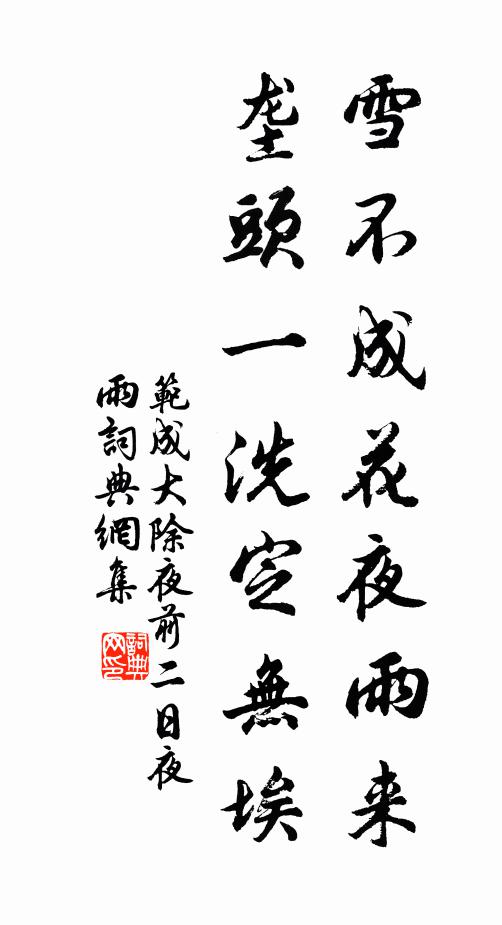 雪不成花夜雨来
垄頭一洗定無埃
範成大除夜前二日夜
雨詞典網集
詞典網印